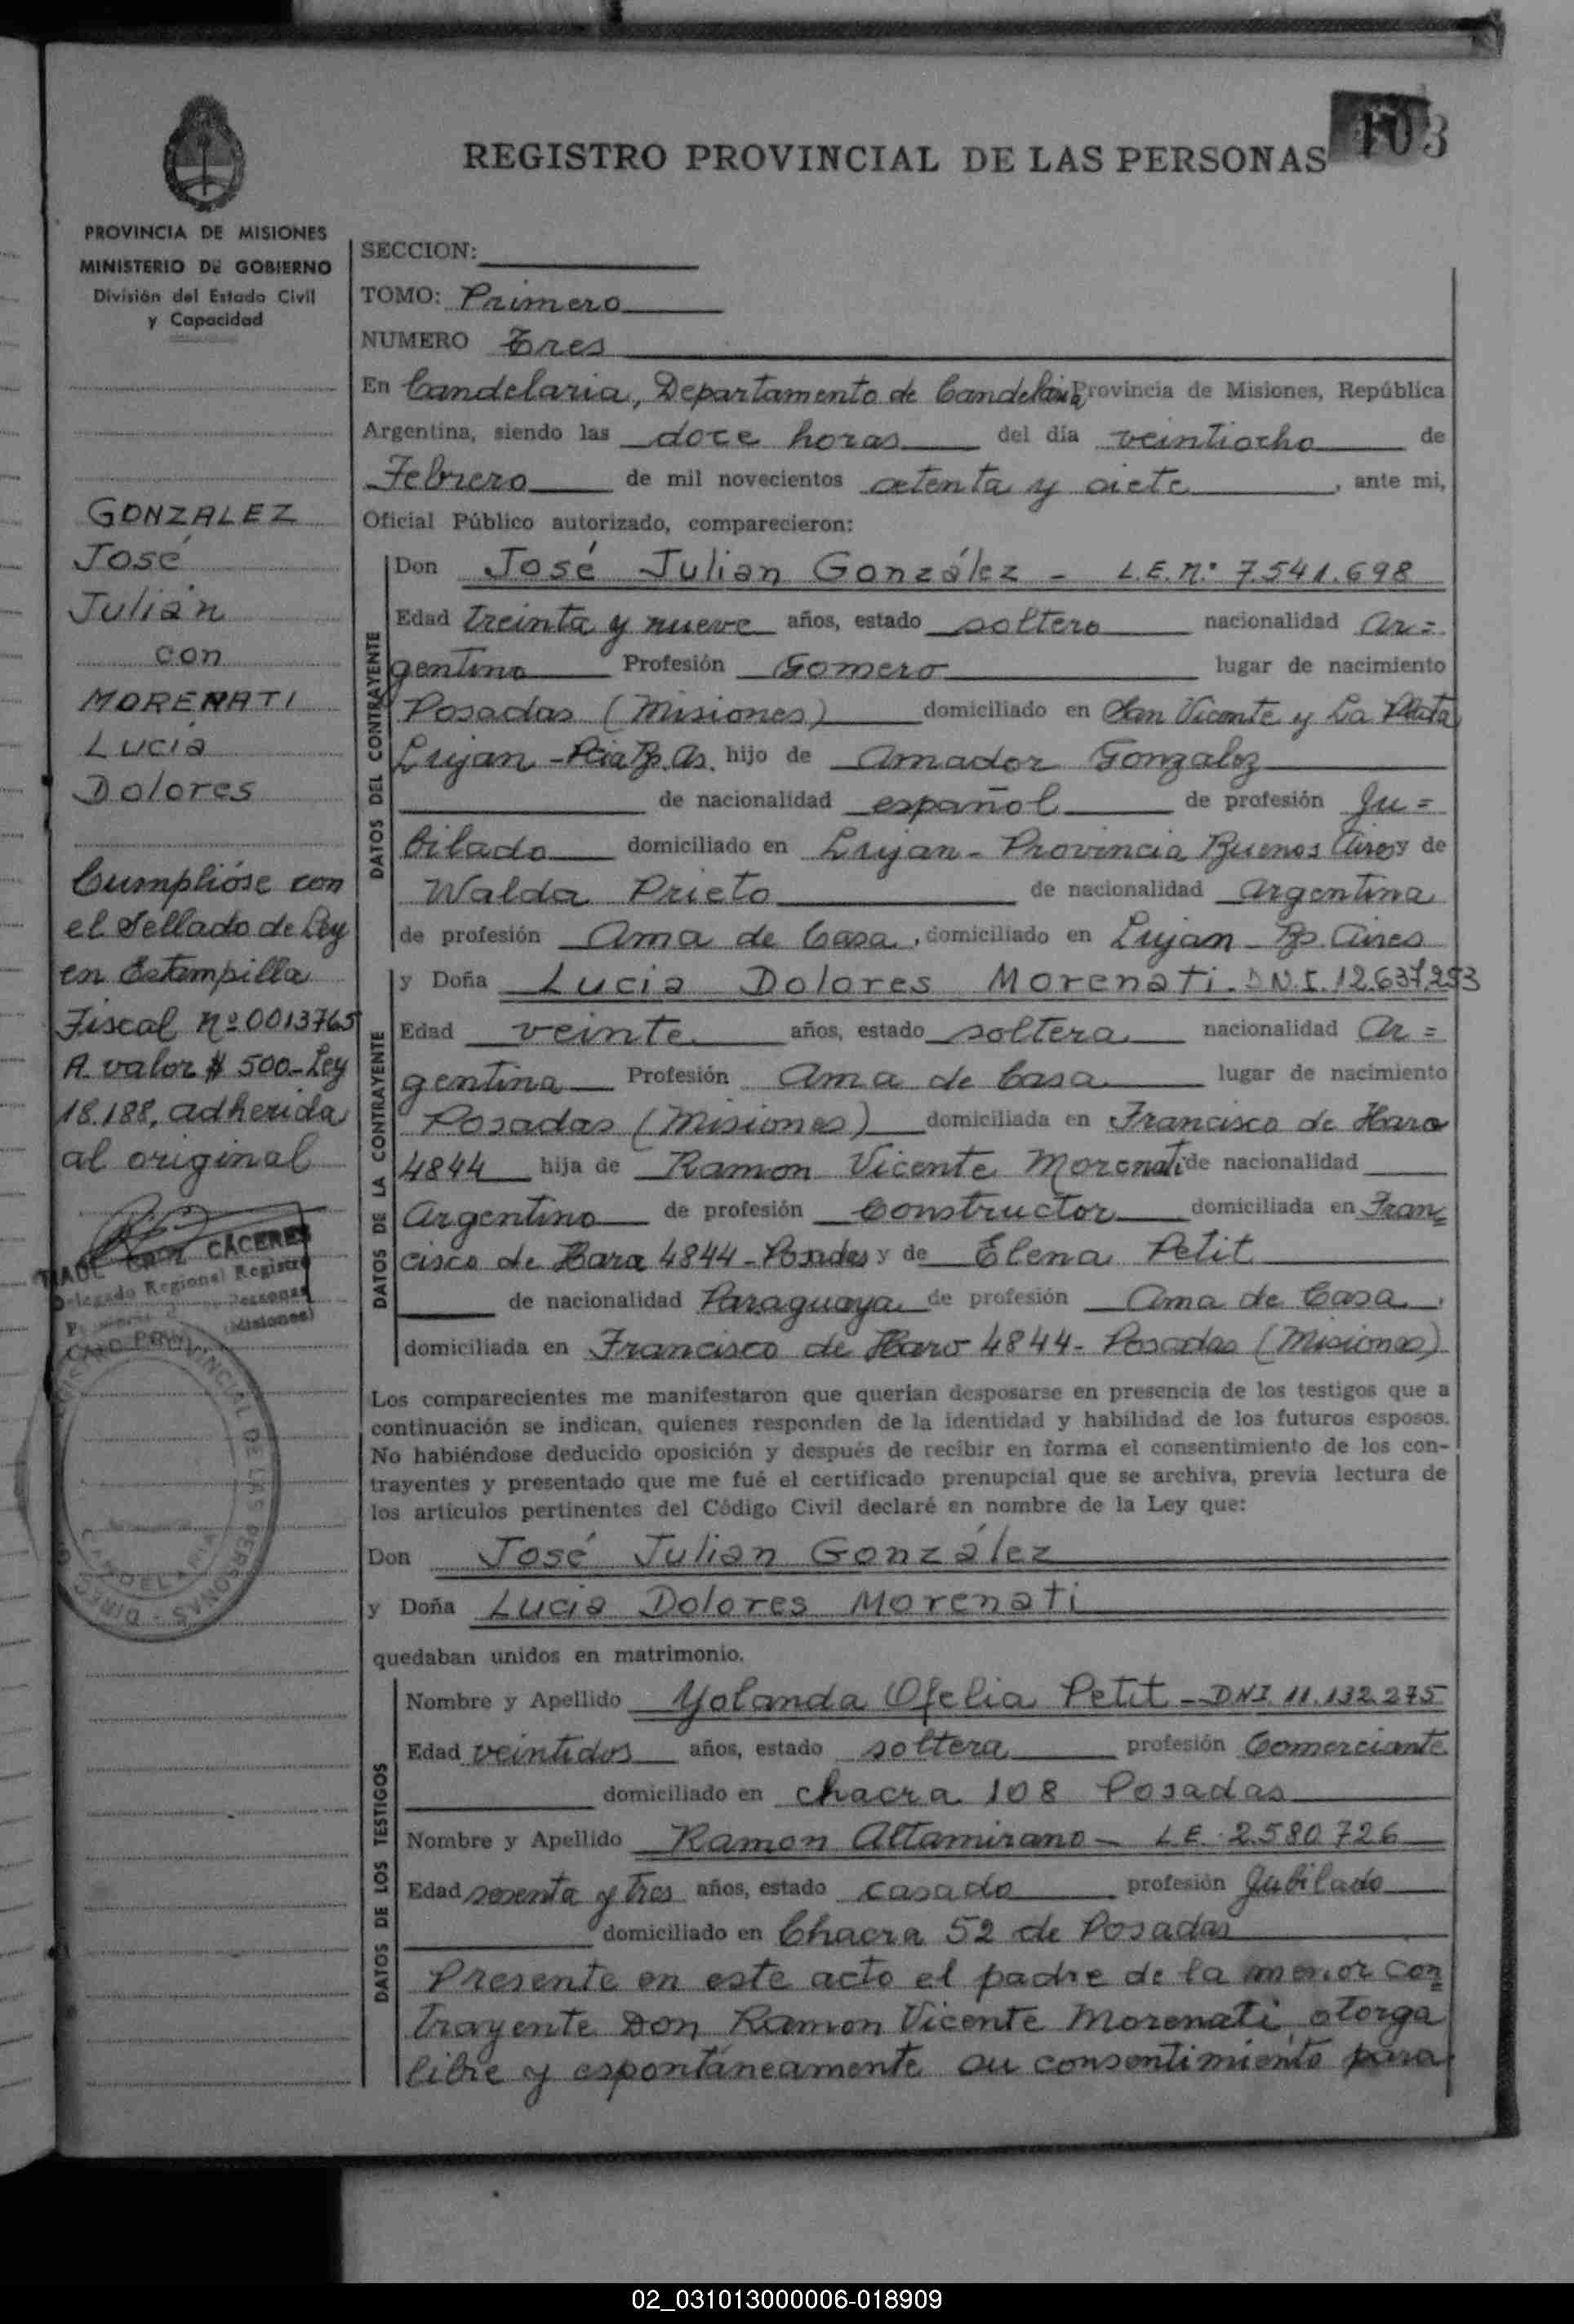 103
REGISTRO PROVINCIAL DE LAS PERSONAS
PROVINCIA DE MISIONES
MINISTERIO DE GOBIERNO
División del Estado Civil
y Capacidad
GONZALEZ
José
Julián
con
MORENATI
Lucia
Dolores
Cumplióse con
el Sellado de Ley
en Estampilla
Fiscal nº 0013765
A valor $ 500-Ley
18.188, adherida
al original
CACERES
Delegado Regional Registro
Personas
(Misiones)
PROVINCIAL DE LAS PERSONAS
CANDELARIA
SECCION:
TOMO: Primero
NUMERO Tres
En Candelaria, Departamento de Candelaria Provincia de Misiones, República
Argentina, siendo las doce horas del día veintiocho de
Febrero de mil novecientos setenta y siete, ante mi,
Oficial Público autorizado, comparecieron:
DATOS DEL CONTRAYENTE
Don José Julian González - L.E. n.º 7.541.698
Edad treinta y nueve años, estado soltero nacionalidad Ar=
gentino Profesión Gomero lugar de nacimiento
Posadas (Misiones) domiciliado en San Vicente y La Plata
Lujan - Pcia Bs. As. hijo de Amador Gonzalez
de nacionalidad español de profesión Ju=
bilado domiciliado en Lujan - Provincia Buenos Aires y de
Walda Prieto de nacionalidad argentina
de profesión Ama de Casa, domiciliado en Lujan - Bs. Aires
DATOS DE LA CONTRAYENTE
y Doña Lucia Dolores Morenati. D.N.I. 12.637.253
Edad veinte años, estado soltera nacionalidad Ar=
gentina Profesión Ama de Casa lugar de nacimiento
Posadas (Misiones) domiciliada en Francisco de Haro
4844 hija de Ramon Vicente Morenati de nacionalidad
Argentino de profesión Constructor domiciliada en Fran=
cisco de Haro 4844 - Posadas y de Elena Petit
de nacionalidad Paraguaya de profesión Ama de Casa,
domiciliada en Francisco de Haro 4844 - Posadas (Misiones)
Los comparecientes me manifestaron que querían desposarse en presencia de los testigos que a
continuación se indican, quienes responden de la identidad y habilidad de los futuros esposos.
No habiéndose deducido oposición y después de recibir en forma el consentimiento de los con-
trayentes y presentado que me fué el certificado prenupcial que se archiva, previa lectura de
los artículos pertinentes del Código Civil declaré en nombre de la Ley que:
Don José Julian González
y Doña Lucia Dolores Morenati
quedaban unidos en matrimonio.
DATOS DE LOS TESTIGOS
Nombre y Apellido Yolanda Ofelia Petit - DNI 11.132.275
Edad veintidos años, estado soltera profesión Comerciante
domiciliado en chacra 108 Posadas
Nombre y Apellido Ramon Altamirano - L.E. 2.580.726
Edad sesenta y tres años, estado casado profesión Jubilado
domiciliado en Chacra 52 de Posadas
Presente en este acto el padre de la menor con=
trayente Don Ramon Vicente Morenati, otorga
libre y espontáneamente su consentimiento para
02_031013000006-018909